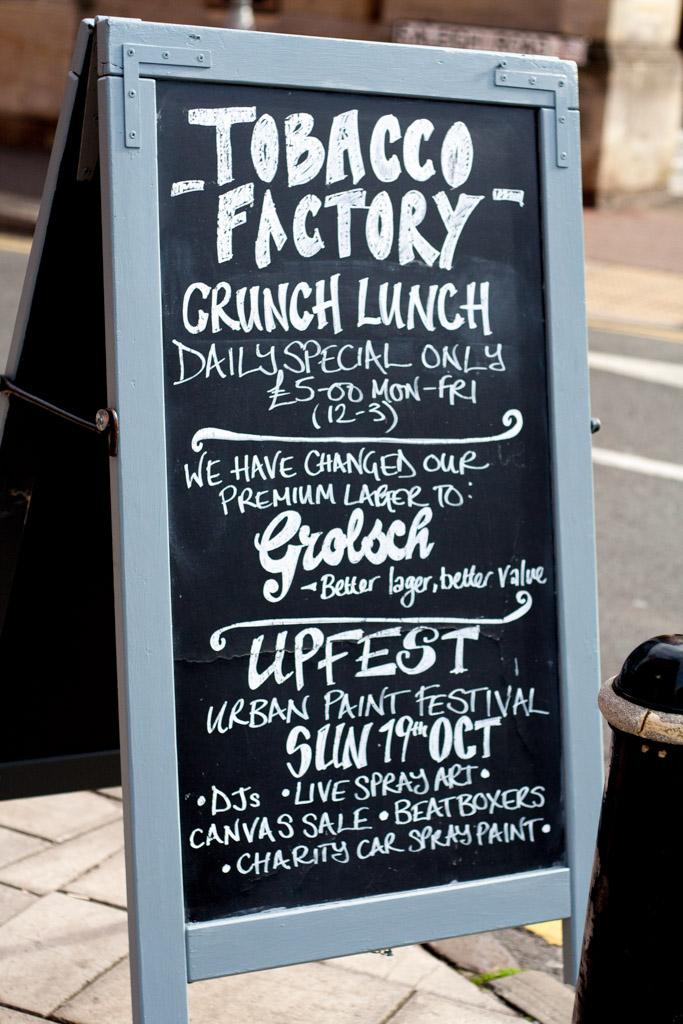 TOBACCO
- FACTORY -
CRUNCH LUNCH
DAILY SPECIAL ONLY
£5-00 MON-FRI
(12-3)
WE HAVE CHANGED OUR
PREMIUM LAGER TO:
Grolsch
- Better lager, better value
UPFEST
URBAN PAINT FESTIVAL
SUN 19th OCT
• DJs • LIVE SPRAY ART •
CANVAS SALE • BEATBOXERS
• CHARITY CAR SPRAY PAINT •